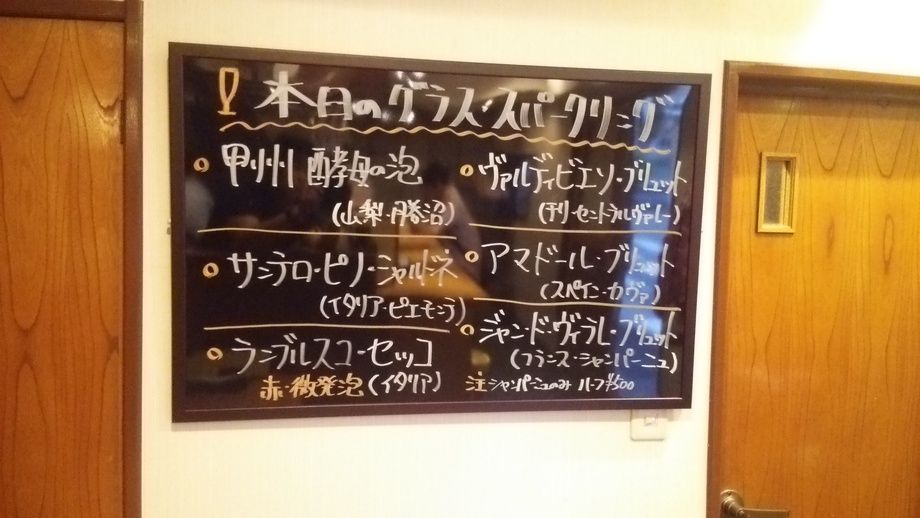 本日のグラス・スパークリング
甲州 酵母の泡
(山梨・勝沼)
サンテロ・ピノ・シャルドネ
(イタリア・ピエモンテ)
ランブルスコ・セッコ
赤・微発泡(イタリア)
ヴァルディビエソ・ブリュット
(チリ セントラルヴァレー)
アマドール・ブリュット
(スペイン・カヴァ)
ジャン・ド・ヴィラレ・ブリュット
(フランス・シャンパーニュ)
注 シャンパーニュのみ ハーフ ¥500